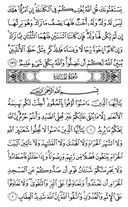 يَسْتَفْتُونَكَ قُلِ اللَّهُ يُفْتِيكُمْ فِي الْكَلَالَةِ إِنِ امْرُؤٌا هَلَكَ
لَيْسَ لَهُ وَلَدٌ وَلَهُ أُخْتٌ فَلَهَا نِصْفُ مَا تَرَكَ وَهُوَ يَرِثُهَا
إِن لَّمْ يَكُن لَّهَا وَلَدٌ فَإِن كَانَتَا اثْنَتَيْنِ فَلَهُمَا الثُّلُثَانِ مِمَّا تَرَكَ
وَإِن كَانُوا إِخْوَةً رِّجَالًا وَنِسَاءً فَلِلذَّكَرِ مِثْلُ حَظِّ الْأُنثَيَيْنِ
يُبَيِّنُ اللَّهُ لَكُمْ أَن تَضِلُّوا وَاللَّهُ بِكُلِّ شَيْءٍ عَلِيمٌ ١٧٦
سُورَةُ الْمَائِدَةِ
بِسْمِ اللَّهِ الرَّحْمَٰنِ الرَّحِيمِ
يَا أَيُّهَا الَّذِينَ آمَنُوا أَوْفُوا بِالْعُقُودِ أُحِلَّتْ لَكُم بَهِيمَةُ
الْأَنْعَامِ إِلَّا مَا يُتْلَىٰ عَلَيْكُمْ غَيْرَ مُحِلِّي الصَّيْدِ وَأَنتُمْ حُرُمٌ إِنَّ اللَّهَ
يَحْكُمُ مَا يُرِيدُ ١ يَا أَيُّهَا الَّذِينَ آمَنُوا لَا تُحِلُّوا شَعَائِرَ اللَّهِ وَلَا الشَّهْرَ
الْحَرَامَ وَلَا الْهَدْيَ وَلَا الْقَلَائِدَ وَلَا آمِّينَ الْبَيْتَ الْحَرَامَ يَبْتَغُونَ
فَضْلًا مِّن رَّبِّهِمْ وَرِضْوَانًا وَإِذَا حَلَلْتُمْ فَاصْطَادُوا وَلَا يَجْرِمَنَّكُمْ
شَنَآنُ قَوْمٍ أَن صَدُّوكُمْ عَنِ الْمَسْجِدِ الْحَرَامِ أَن تَعْتَدُوا وَتَعَاوَنُوا
عَلَى الْبِرِّ وَالتَّقْوَىٰ وَلَا تَعَاوَنُوا عَلَى الْإِثْمِ وَالْعُدْوَانِ
وَاتَّقُوا اللَّهَ إِنَّ اللَّهَ شَدِيدُ الْعِقَابِ ٢